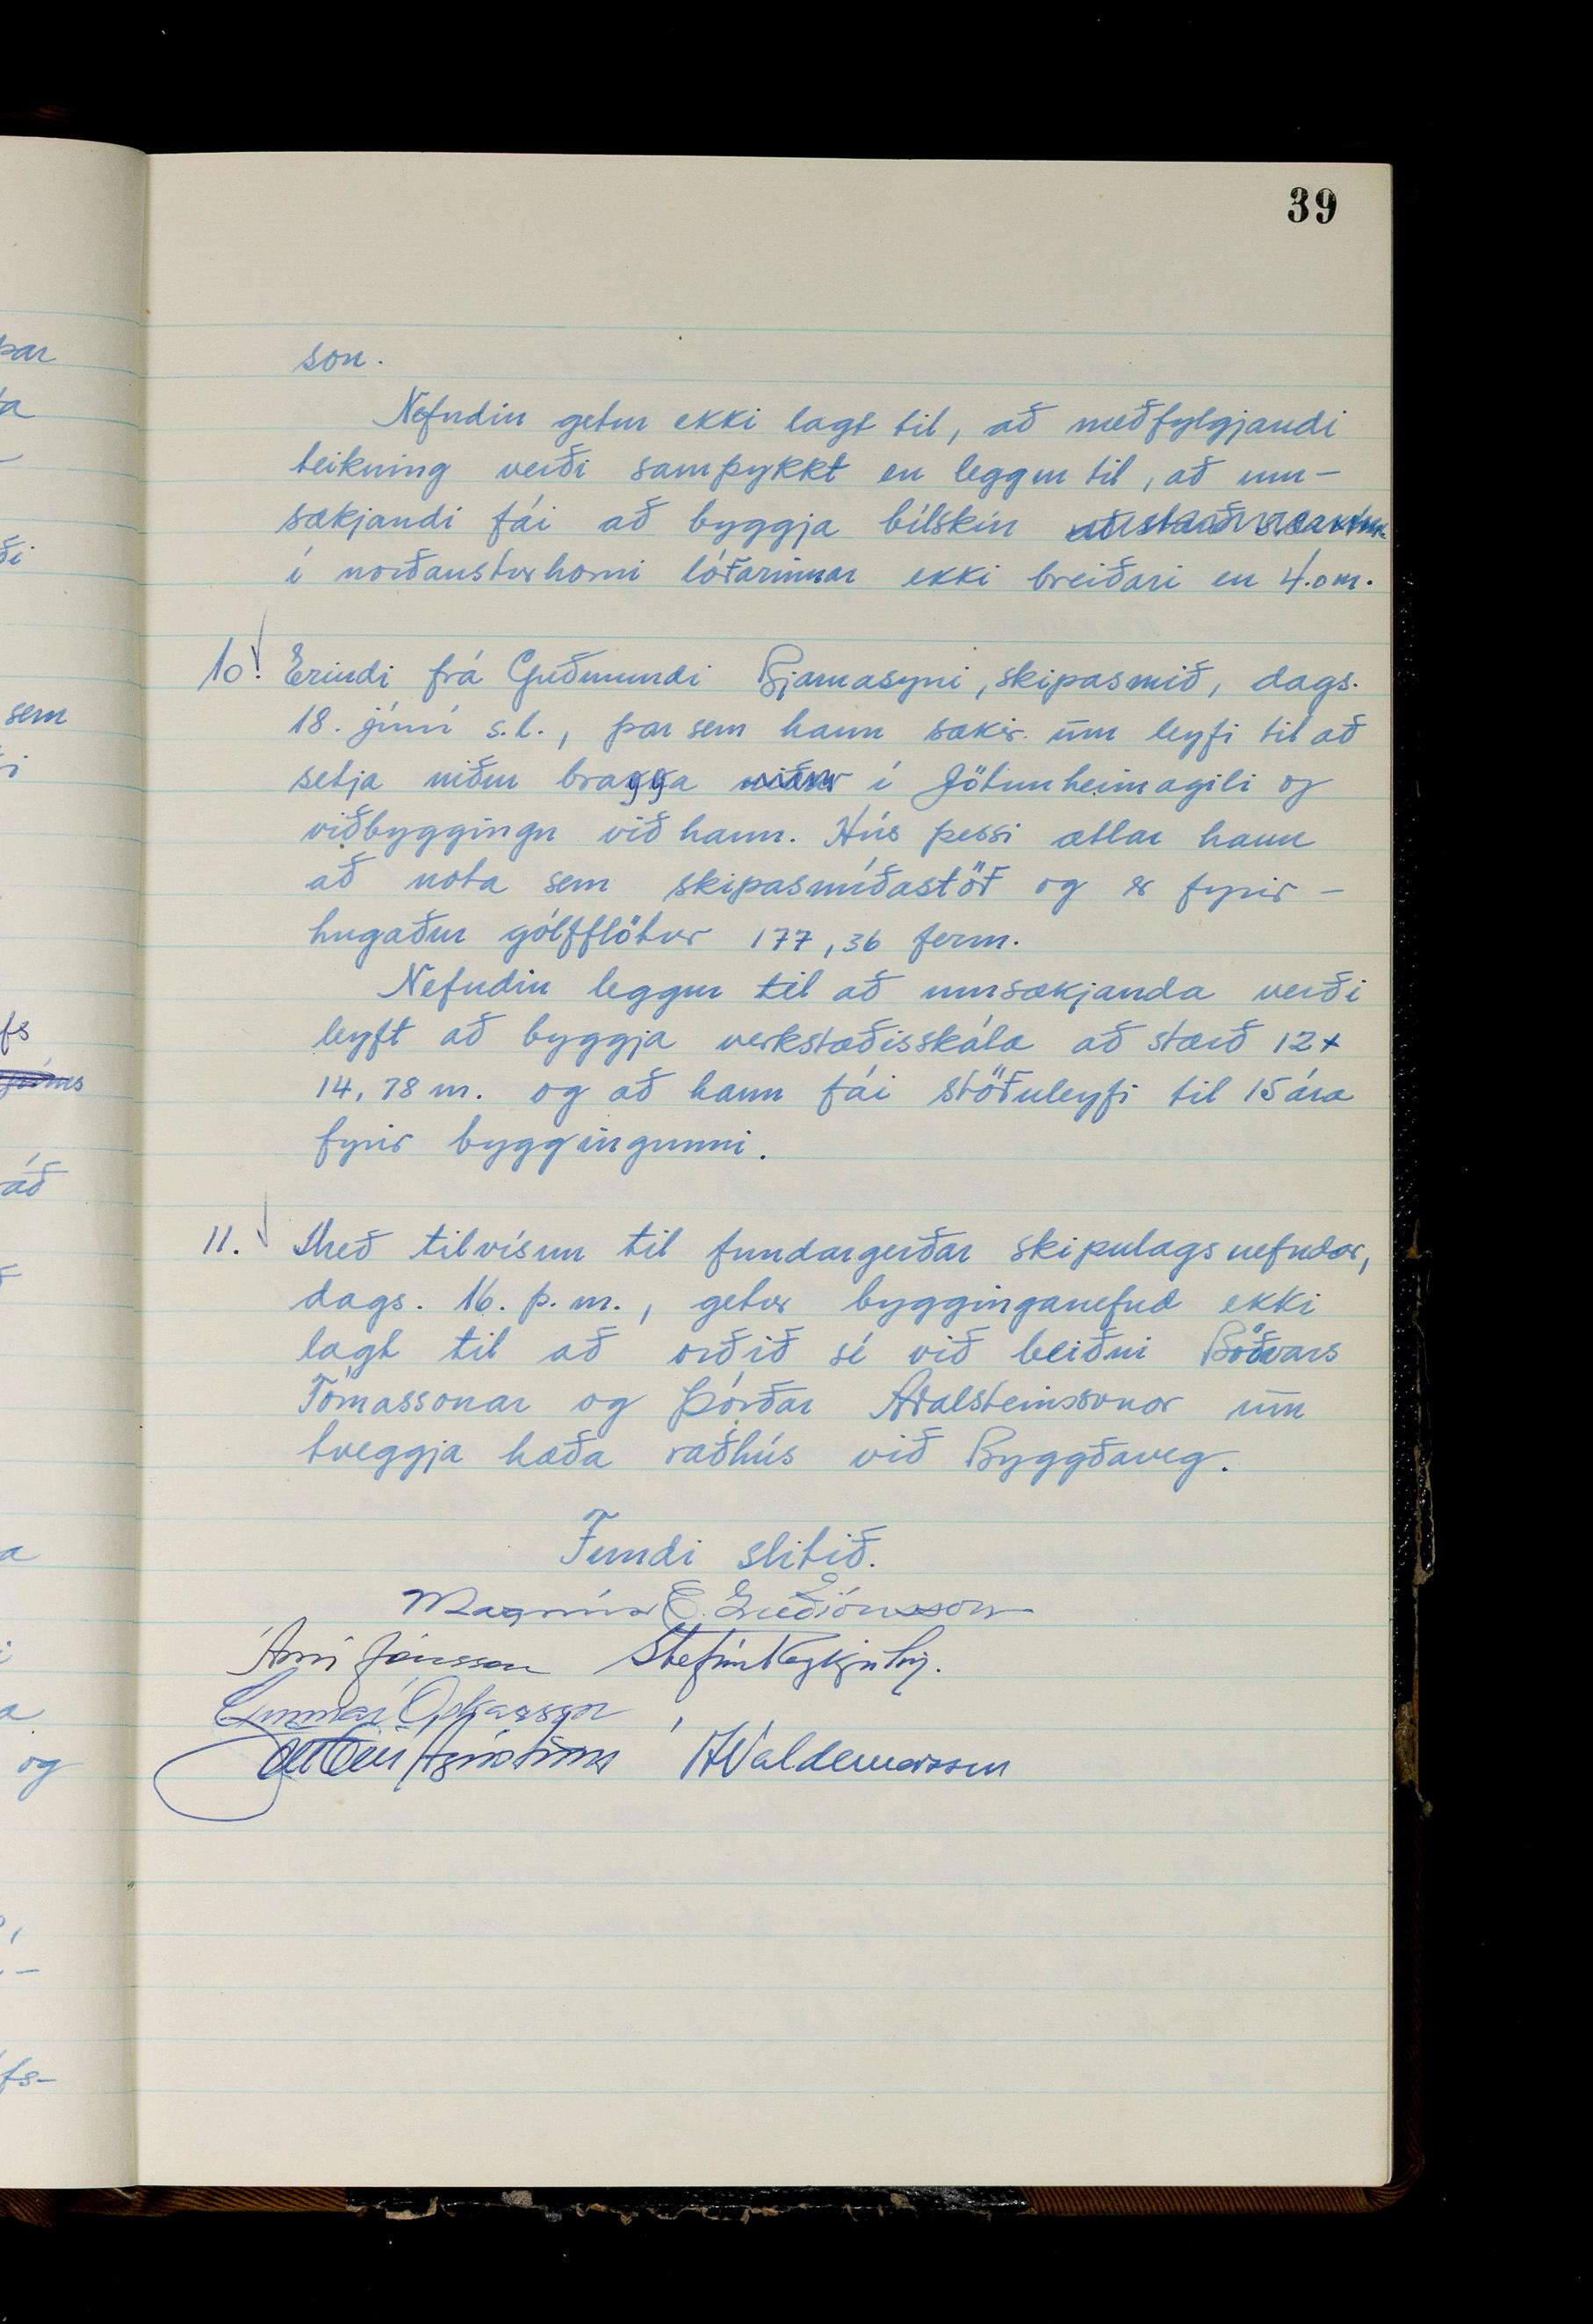 39
son.
Nefndin getur ekki lagt til, að meðfylgjandi
teikning verði samþykkt en leggur til, að um-
sækjandi fái að byggja bílskúr
í norðausturhorni lóðarinnar ekki breiðari en 4.0 m.
10. Erindi frá Guðmundi Bjarnasyni, skipasmið, dags.
18. júní s.l., þar sem hann sækir um leyfi til að
setja niður bragga niður í Jötunheimagili og
viðbyggingu við hann. Hús þessi ætlar hann
að nota sem skipasmíðastöð og er fyrir-
hugaður gólfflötur 177,36 ferm.
Nefndin leggur til að umsækjanda verði
leyft að byggja verkstæðisskála að stærð 12x
14,78 m. og að hann fái stöðuleyfi til 15 ára
fyrir byggingunni.
11. Með tilvísun til fundargerðar skipulagsnefndar,
dags. 16. þ.m., getur bygginganefnd ekki
lagt til að orðið sé við beiðni Böðvars
Tómassonar og Þórðar Aðalsteinssonar um
tveggja hæða raðhús við Byggðaveg.
Fundi slitið.
Magnús E. Guðjónsson
Árni Jónsson Stefán Reykjalín.
Gunnar Óskarsson
H Valdemarsson
par
ta
ði
sem
fs
áð
a
a
og
fs-